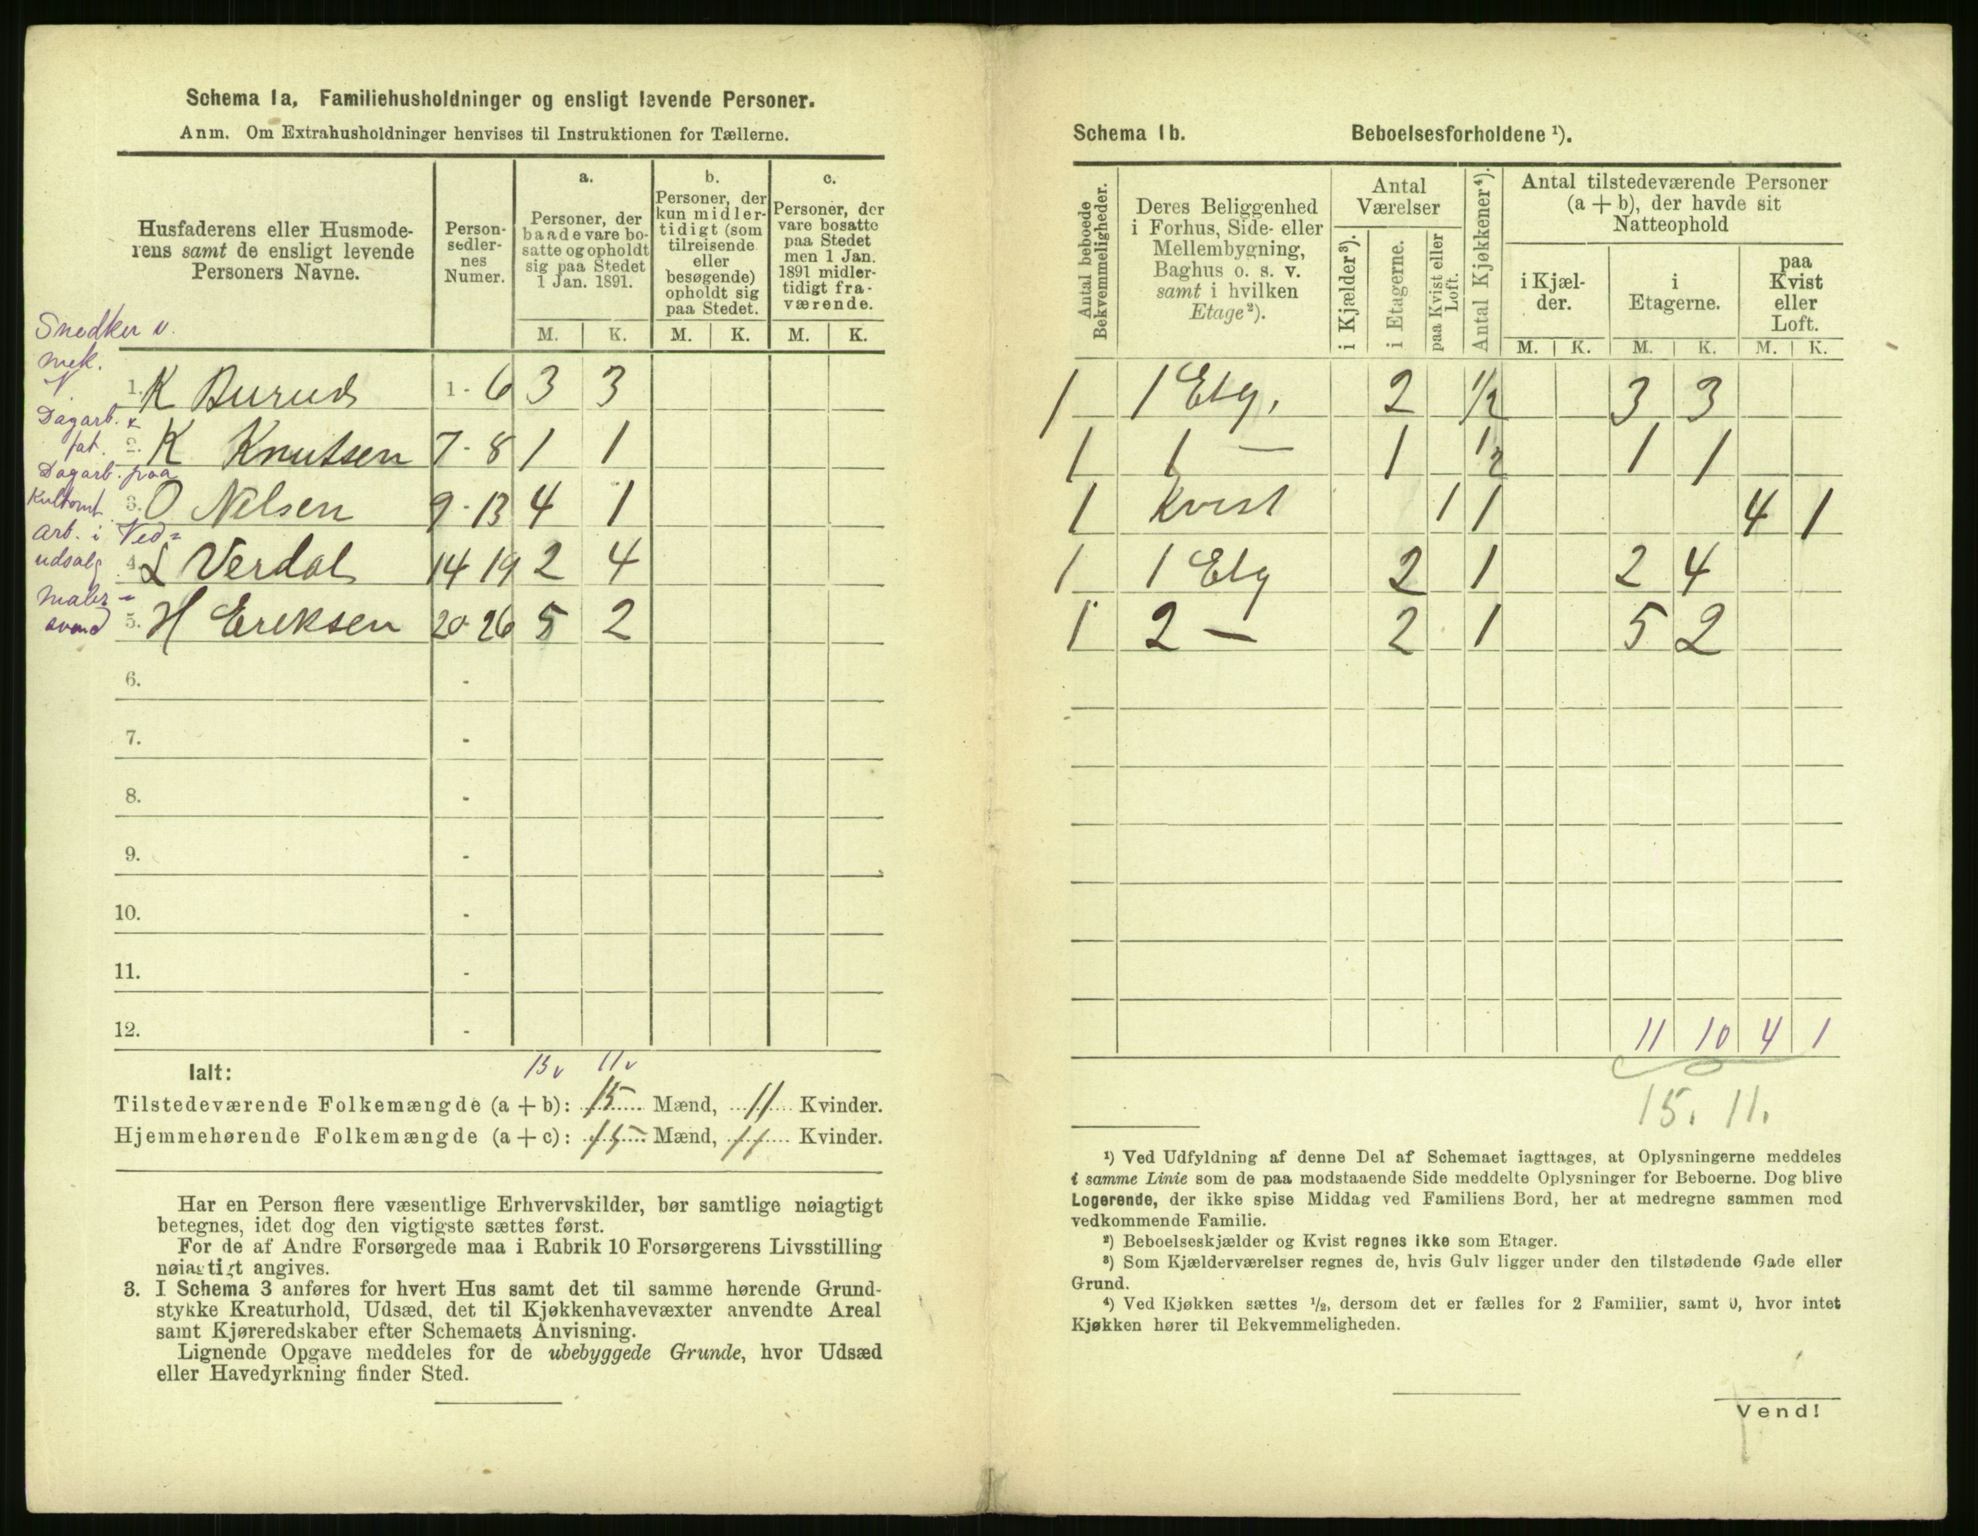 Schema 1a, Familiehusholdninger og ensligt levende Personer.
Anm. Om Extrahusholdninger henvises til Instruktionen for Tællerne.
Husfaderens eller Husmode-
rens samt de ensligt levende
Personers Navne.
Person-
sedler-
nes
Numer.
a.
Personer, der
baade vare bo-
satte og opholdt
sig paa Stedet
1 Jan. 1891.
b.
Personer, der
kun midler-
tidigt (som
tilreisende
eller
besøgende)
opholdt sig
paa Stedet.
c.
Personer, der
vare bosatte
paa Stedet
men 1 Jan.
1891 midler-
tidigt fra-
værende.
M. K. M. K. M. K.
Snedker v.
mek.
1. K Burud 1-6 3 3
Dagarb.
fat.
2. K Knutsen 7-8 1 1
Dagarb. paa
Kultomt
3. O Nilsen 9-13 4 1
Arb. i Ved=
udsalg
4. L Verdal 14 19 2 4
Maler=
svend
5. H Eriksen 20-26 5 2
6. -
7. -
8. -
9. -
10. -
11. -
12. -
15 v 11 v
Ialt:
Tilstedeværende Folkemængde (a + b): 15 Mænd, 11 Kvinder.
Hjemmehørende Folkemængde (a + c): 15 Mænd, 11 Kvinder.
Har en Person flere væsentlige Erhvervskilder, bør samtlige nøiagtigt
betegnes, idet dog den vigtigste sættes først.
For de af Andre Forsørgede maa i Rubrik 10 Forsørgerens Livsstilling
nøiagtigt angives.
3. I Schema 3 anføres for hvert Hus samt det til samme hørende Grund-
stykke Kreaturhold, Udsæd, det til Kjøkkenhavevæxter anvendte Areal
samt Kjøreredskaber efter Schemaets Anvisning.
Lignende Opgave meddeles for de ubebyggede Grunde, hvor Udsæd
eller Havedyrkning finder Sted.
Schema 1b. Beboelsesforholdene ¹).
Antal beboede
Bekvemmeligheder.
Deres Beliggenhed
i Forhus, Side- eller
Mellembygning,
Baghus o. s. v.
samt i hvilken
Etage²).
Antal
Værelser
i Kjælder³).
i Etagerne.
paa Kvist eller
Loft.
Antal Kjøkkener⁴).
Antal tilstedeværende Personer
(a + b), der havde sit
Natteophold
i Kjæl-
der.
i
Etagerne.
paa
Kvist
eller
Loft.
M. K. M. K. M. K.
1 1 Etg. 2 1/2 3 3
1 1 — 1 1/2 1 1
1 Kvist 1 1 4 1
1 1 Etg 2 1 2 4
1 2 — 2 1 5 2
11 10 4 1
15. 11.
¹) Ved Udfyldning af denne Del af Schemaet iagttages, at Oplysningerne meddeles
i samme Linie som de paa modstaaende Side meddelte Oplysninger for Beboerne. Dog blive
Logerende, der ikke spise Middag ved Familiens Bord, her at medregne sammen med
vedkommende Familie.
²) Beboelseskjælder og Kvist regnes ikke som Etager.
³) Som Kjælderværelser regnes de, hvis Gulv ligger under den tilstødende Gade eller
Grund.
⁴) Ved Kjøkken sættes ½, dersom det er fælles for 2 Familier, samt 0, hvor intet
Kjøkken hører til Bekvemmeligheden.
Vend!